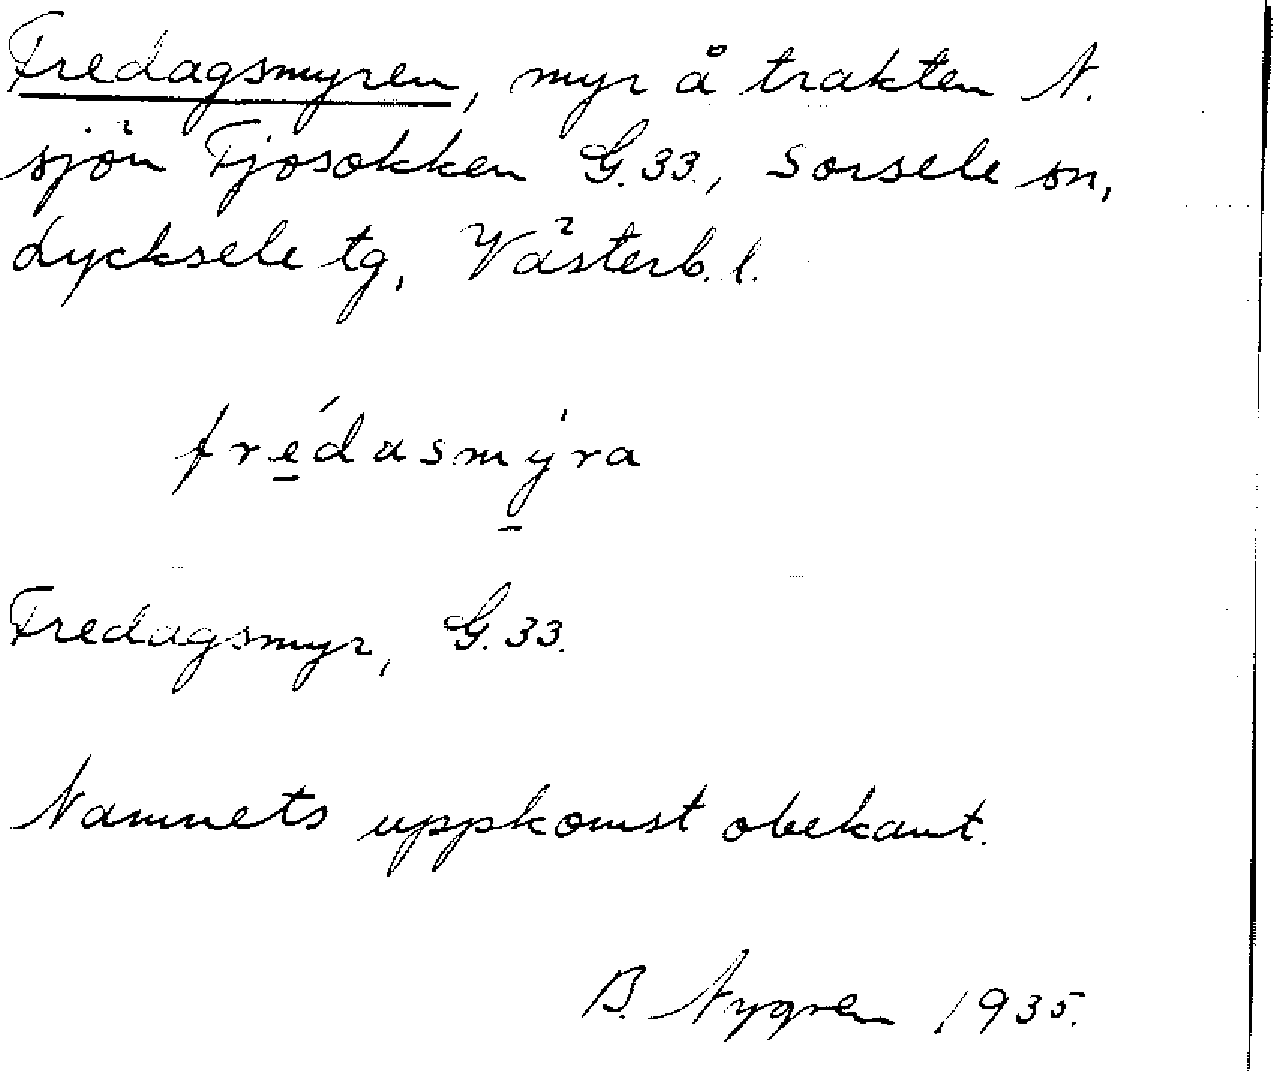 Fredagsmyren, myr å trakten N.
sjön Fjosokken G.33., Sorsele sn,
Lycksele tg, Västerb. l.
fré̱dasmy̱̍ra
Fredagsmyr, G.33.
Namnets uppkomst obekant.
B. Nygren 1935.